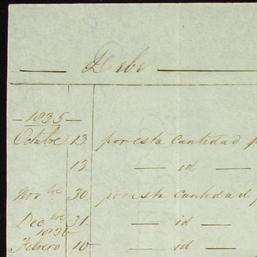 Debe
- 1835 -
Octubre 13 por esta cantidad p
13 — id —
Nov.bre 30 por esta cantidad p
Dec.bre 31 — id —
1836
Febrero 10 — id —